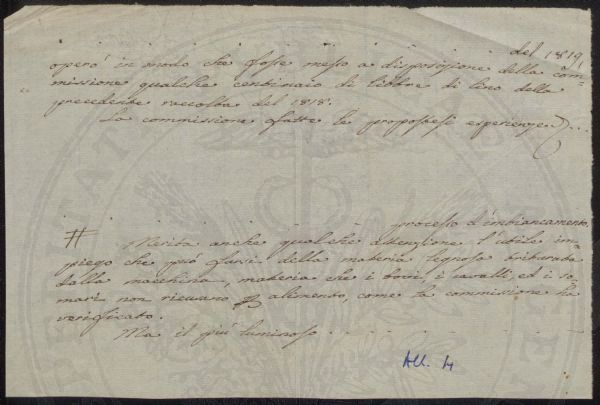 del 1819
operò in modo che fosse messo a disposizione della com=
missione qualche centinaio di libbre di lino della
precedente raccolta del 1818.
La commissione fatte le propostesi esperienze)...
processo d'imbiancamento.
# Merita anche qualche attenzione l'utile im=
piego che può farsi della materia legnosa triturata
dalla macchina, materia che i bovi, i cavalli, ed i so=
mari non ricusano alimento, come la commissione ha
verificato.
Ma il più luminoso . . . .
All. 4